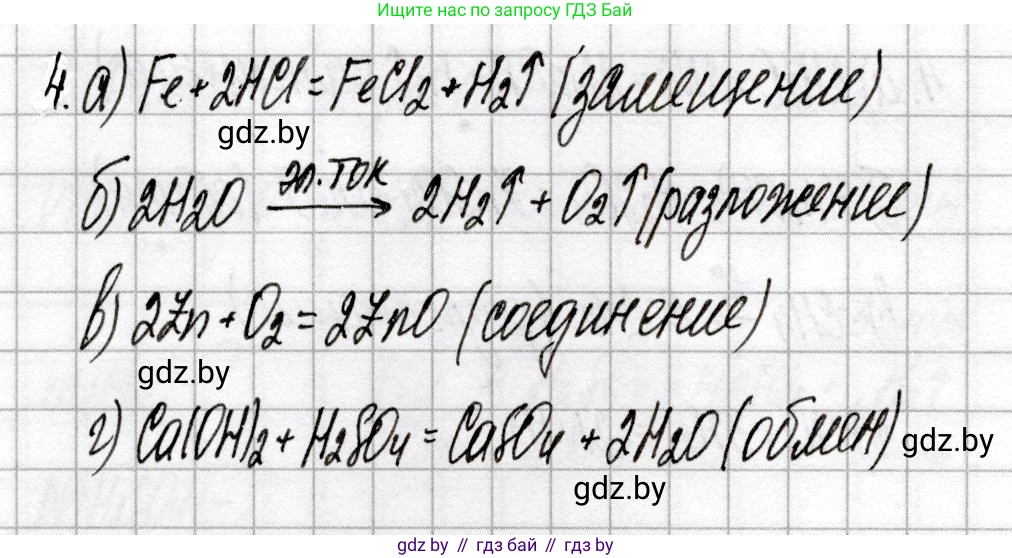 Ищите нас по запросу ГДЗ Бай
4. а) Fe + 2HCl = FeCl₂ + H₂↑ (замещение)
gdz.by
эл. ток
б) 2H₂O ⟶ 2H₂↑ + O₂↑ (разложение)
в) 2Zn + O₂ = 2ZnO (соединение)
gdz.by
г) Ca(OH)₂ + H₂SO₄ = CaSO₄ + 2H₂O (обмен) gdz.by
gdz.by
gdz.by // гдз бай // gdz by